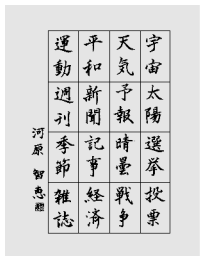 宇宙
太陽
選挙
投票
天気
予報
晴曇
戦争
平和
新聞
記事
経済
運動
週刊
季節
雑誌
河原智恵